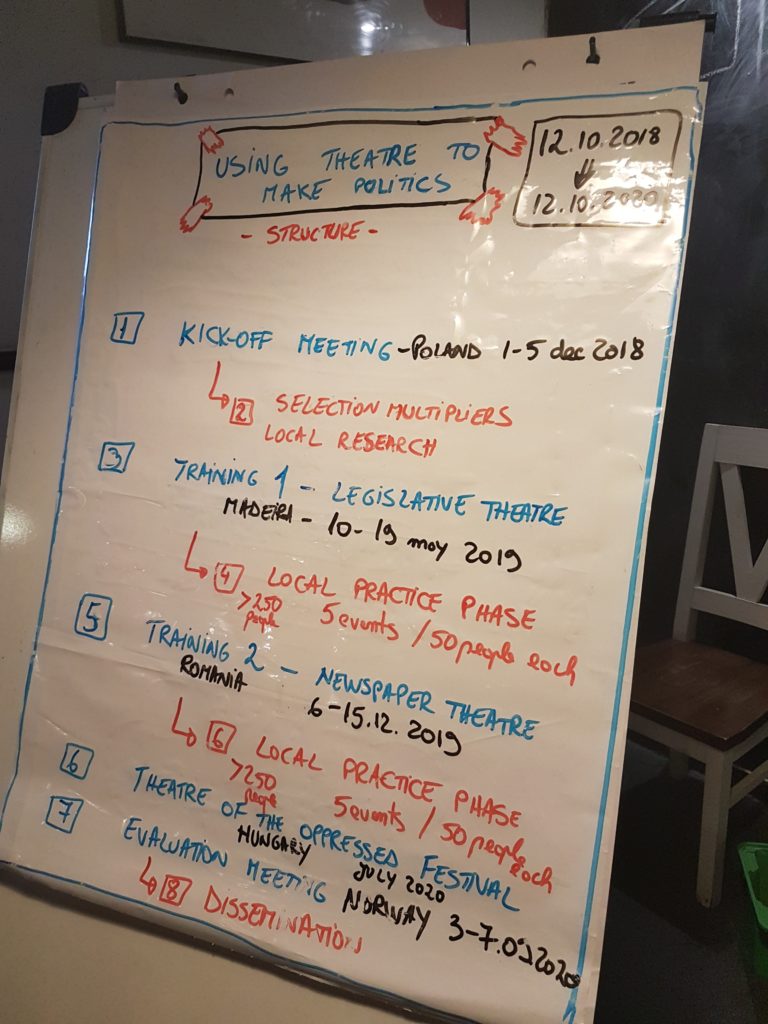 USING THEATRE TO
MAKE POLITICS
12.10.2018
⇓
12.10.2020
- STRUCTURE -
1 KICK-OFF MEETING - POLAND 1-5 dec 2018
2 SELECTION MULTIPLIERS
LOCAL RESEARCH
3 TRAINING 1 - LEGISLATIVE THEATRE
MADEIRA - 10-19 may 2019
4 LOCAL PRACTICE PHASE
>250 people 5 events / 50 people each
5 TRAINING 2 - NEWSPAPER THEATRE
ROMANIA 6-15.12.2019
6 LOCAL PRACTICE PHASE
>250 people 5 events / 50 people each
6 THEATRE OF THE OPPRESSED FESTIVAL
HUNGARY JULY 2020
7 EVALUATION MEETING NORWAY
8 DISSEMINATION